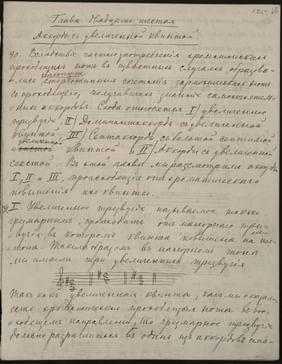 Глава Двадцать шестая
Аккорды с увеличенной квинтой
90. Вследствие частого употребления хроматических
проходящих нот в известных случаях образова-
лись сочетания гармонических нот
с проходящею, получивших значение самостоятель-
ных аккордов. Сюда относятся I) увеличенное
трезвучие, II) Доминантаккорд с увеличенной
квинтой, III) Септаккорд с большой септимой
и увеличенной квинтой и IV) Аккорды с увеличенною
секстой. В этой главе мы рассмотрим аккорды
I, II и III, происходящие от хроматического
повышения их квинты.
I. Увеличенное трезвучие называемое также
чрезмерным, происходит от мажорного трез-
вучия, в котором квинта повышена на полу-
тона. Таким образом в мажорном тоне
мы имеем три увеличенных трезвучия
Так как увеличенная квинта, как мы сказали,
есть хроматическая проходящая нота в вос-
ходящем направлении, то чрезмерное трезвучие
должно разрешиться в один из аккордов